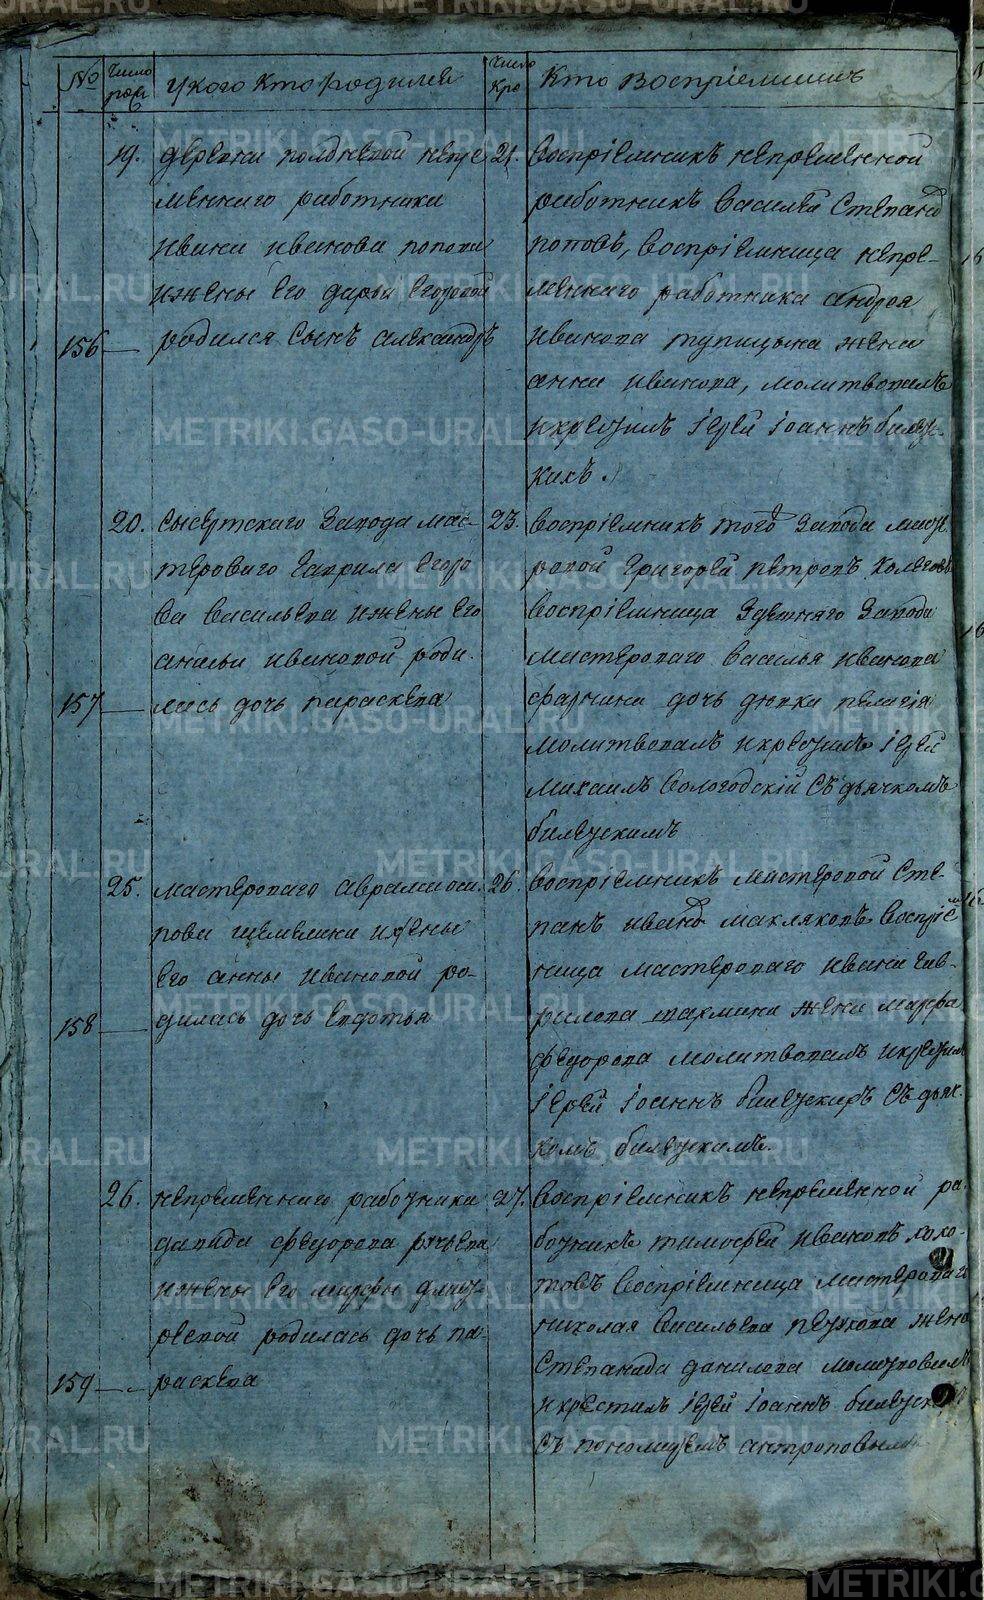 №
Число рож
У кого кто родился
Число кре
Кто восприемники
19.
деревни полдневой непре
меннаго работника
ивана иванова попова
ижены его дарьи егоровой
156
родился сынъ александръ
21.
восприемникъ непременной
работникъ василей степано
поповъ, восприемница непре-
меннаго работника андрея
иванова тупицына жена
анна иванова, молитвовалъ
икрестилъ иерей иоаннъ
кихъ.
20.
сысертскаго завода мас-
тероваго гаврила егоро
ва васильева ижены его
ивановой роди
157
лась дочь параскева
23.
восприемникъ того завода масте
ровой григорей петровъ
восприемница здешняго завода
мастероваго василья иванова
дочь девка пелагия
молитвовалъ икрестилъ иерей
михаилъ вологодский съ дьячкомъ
25.
мастероваго аврама оси
пова ижены
его анны ивановой ро-
158
дилась дочь евдотья
26.
восприемникъ мастеровой сте-
панъ ивано макляковъ восприем
ница мастероваго ивана гав-
рилова жена марфа
федорова молитвовалъ икрестил
иерей иоаннъ съ дьяч
комъ
26.
непременнаго работника
давида федорова
ижены его марфы дмит
ревой родилась дочь па-
159
раскева
27.
восприемникъ непременной ра
ботникъ тимофей ивановъ
восприемница мастероваго
николая васильева жена
степанида данилова молитвовалъ
икрестилъ иерей иоаннъ
съ пономаремъ антроповымъ
METRIKI.GASO-URAL.RU